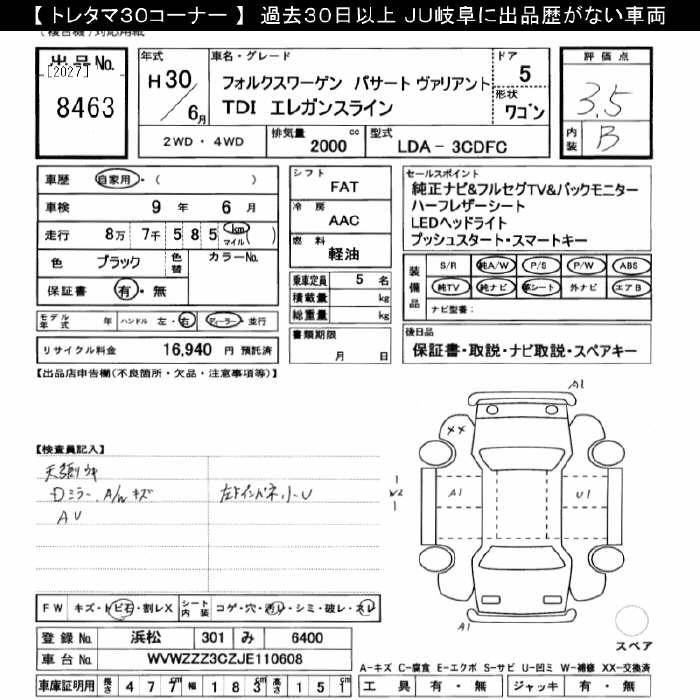 【トレタマ30コーナー】 過去30日以上 JU岐阜に出品歴がない車両
(複合機)対応用紙
出品No.
[2027]
8463
年式
H30
6月
車名・グレード
フォルクスワーゲン パサート ヴァリアント
TDI エレガンスライン
ドア
5
形状
ワゴン
2WD・4WD
排気量
2000
cc
型式
LDA-3CDFC
評価点
3.5
内装
B
車歴 自家用・( )
車検 9年 6月
走行 8万 7千 5 8 5 km マイル ( )
色 ブラック 色替 カラーNo.
保証書 有・無
モデル年式 年 ハンドル 左・右 ディーラー・並行
リサイクル料金 16,940 円 預託済
シフト FAT
冷房 AAC
燃料 軽油
乗車定員 5 名
積載量 kg
総重量 kg
書類期限
月 日
セールスポイント
純正ナビ&フルセグTV&バックモニター
ハーフレザーシート
LEDヘッドライト
プッシュスタート・スマートキー
装備品
S/R 純A/W P/S P/W ABS
純TV 純ナビ 革シート 外ナビ エアB
ナビ型番:
後日品
保証書・取説・ナビ取説・スペアキー
【出品店申告欄(不良箇所・欠品・注意事項等)】
【検査員記入】
天張りウキ
Dミラー、A/Wキズ
AU
A1
XX
A1
U1
W2
A1
スペア
FW キズ・トビ石・割レX シート内装 コゲ・穴・汚レ・シミ・破レ・スレ
登録No. 浜松 301 み 6400
車台No. WVWZZZ3CZJE110608
A-キズ C-腐食 E-エクボ S-サビ U-凹ミ W-補修 XX-交換済
車庫証明用 長さ 477cm 幅 183cm 高さ 151cm
工具 有・無 ジャッキ 有・無